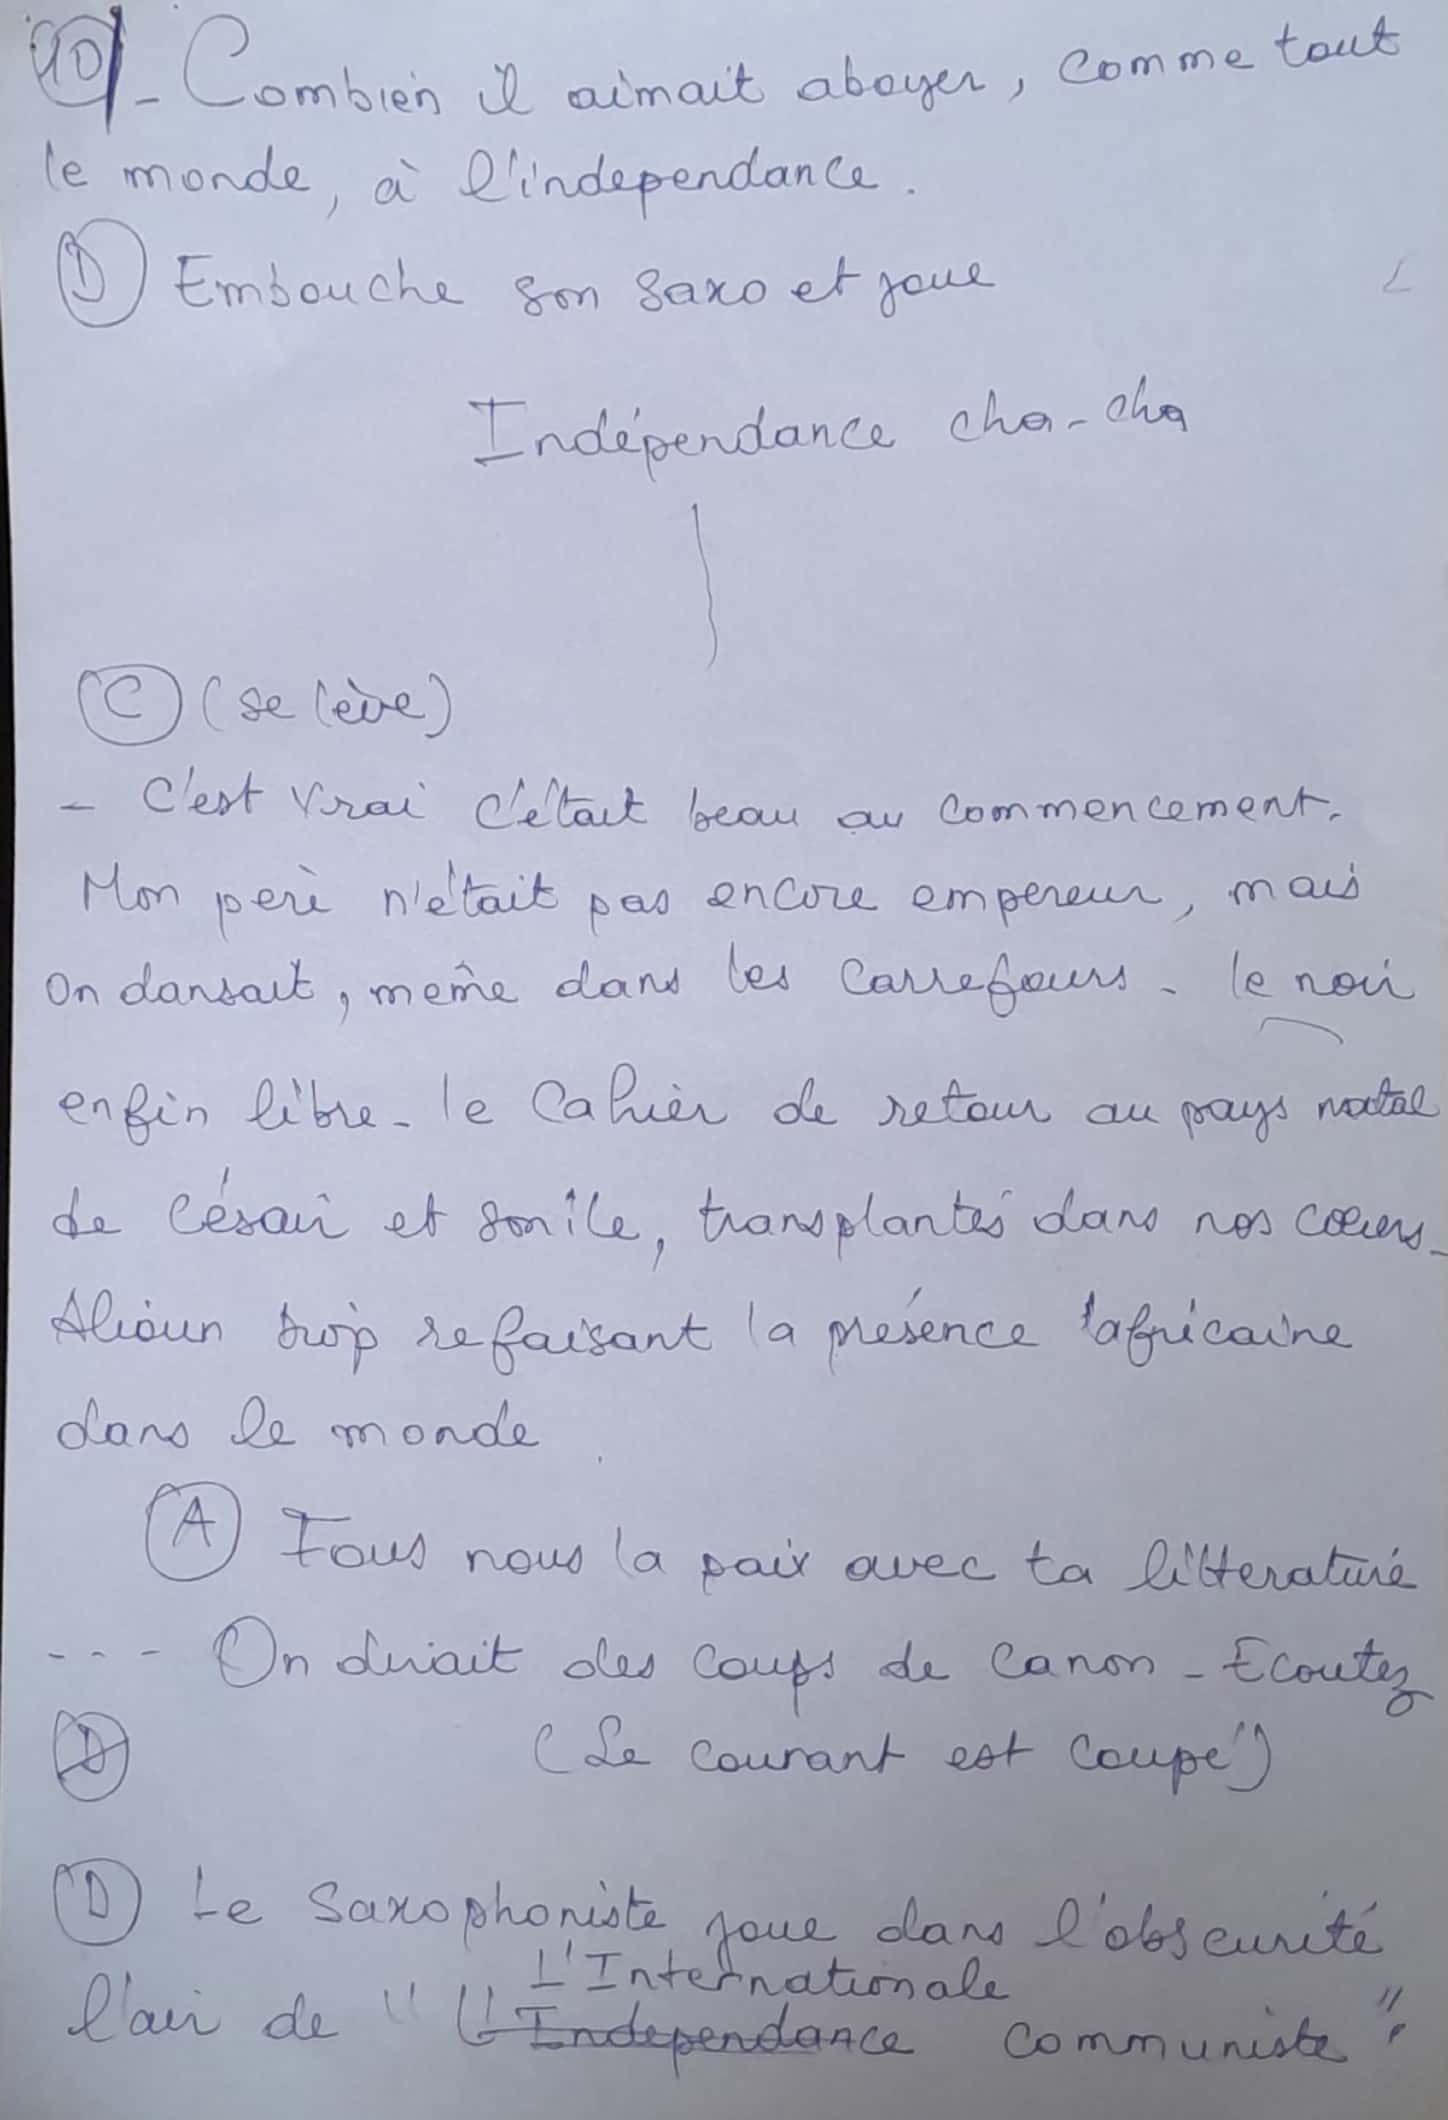 10 - Combien il aimait aboyer, comme tout
le monde, à l'independance.
D Embouche son saxo et joue
Indépendance cha-cha
C (se lève)
- C'est vrai c'était beau au commencement.
Mon père n'était pas encore empereur, mais
on dansait, même dans les carrefours. le noir
enfin libre - le Cahier de retour au pays natal
de Césair et son île, transplantés dans nos cœurs -
Alioun Diop refaisant la présence africaine
dans le monde.
A Fous nous la paix avec ta litterature
--- On dirait des coups de canon - Ecoutez
D (Le courant est coupé)
D Le Saxophoniste joue dans l'obscurité
L'Internationale
l'air de " L'Independance communiste".